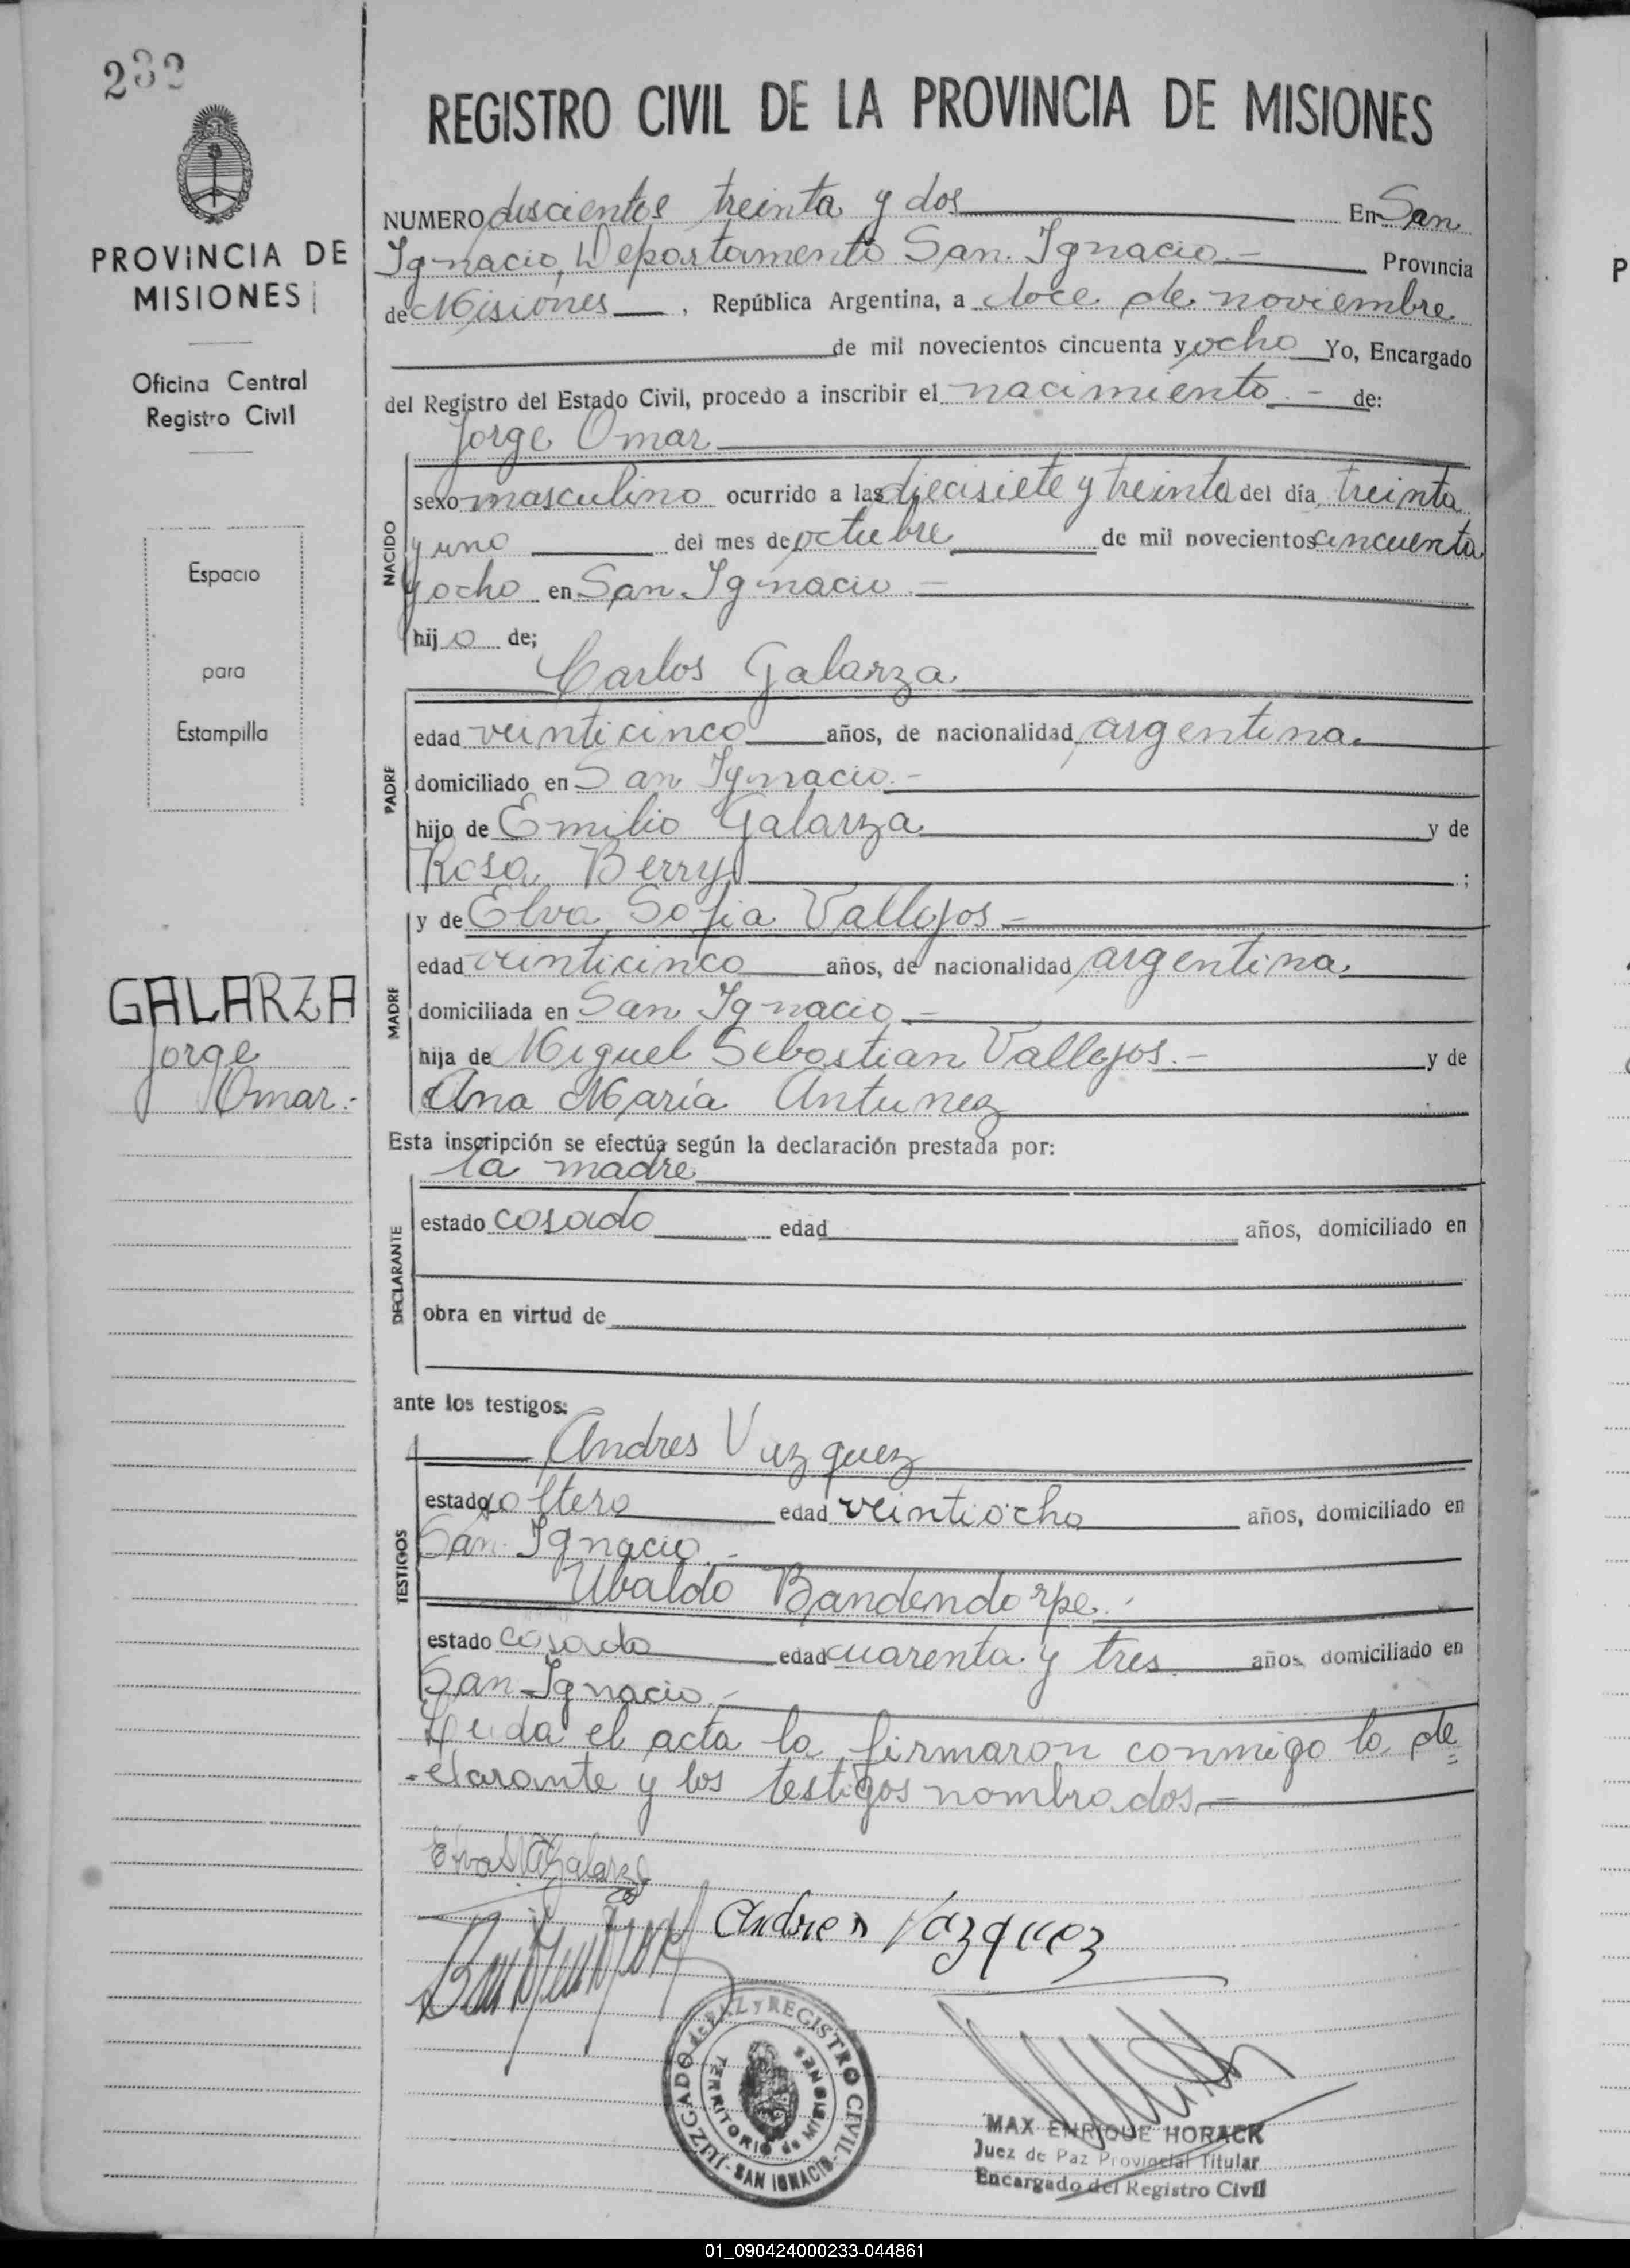 232
PROVINCIA DE
MISIONES
Oficina Central
Registro Civil
Espacio
para
Estampilla
GALARZA
Jorge
Omar.-
REGISTRO CIVIL DE LA PROVINCIA DE MISIONES
NUMERO doscientos treinta y dos En San
Ignacio, Departamento San Ignacio.- Provincia
de Misiones, República Argentina, a doce de noviembre
de mil novecientos cincuenta y ocho Yo, Encargado
del Registro del Estado Civil, procedo a inscribir el nacimiento.- de:
Jorge Omar
NACIDO
sexo masculino ocurrido a las diecisiete y treinta del día treinta
y uno del mes de octubre de mil novecientos cincuenta
y ocho en San Ignacio.-
hijo de;
Carlos Galarza
PADRE
edad veinticinco años, de nacionalidad argentina.
domiciliado en San Ignacio.-
hijo de Emilio Galarza y de
Rosa Berry ;
y de Elva Sofia Vallejos.-
MADRE
edad veinticinco años, de nacionalidad argentina.
domiciliada en San Ignacio.-
hija de Miguel Sebastian Vallejos.- y de
Ana María Antunez
Esta inscripción se efectúa según la declaración prestada por:
la madre
DECLARANTE
estado casado edad años, domiciliado en
obra en virtud de
ante los testigos:
Andres Vazquez
TESTIGOS
estado soltero edad veintiocho años, domiciliado en
San Ignacio.-
Ubaldo Bandendorpe.
estado casado edad cuarenta y tres años domiciliado en
San Ignacio.-
Leida el acta la firmaron conmigo la de=
clarante y los testigos nombrados.-
Elva Galarza
Andres Vazquez
JUZGADO de PAZ Y REGISTRO CIVIL
TERRITORIO de MISIONES
- SAN IGNACIO -
MAX ENRIQUE HORACK
Juez de Paz Provincial Titular
Encargado del Registro Civil
01_090424000233-044861